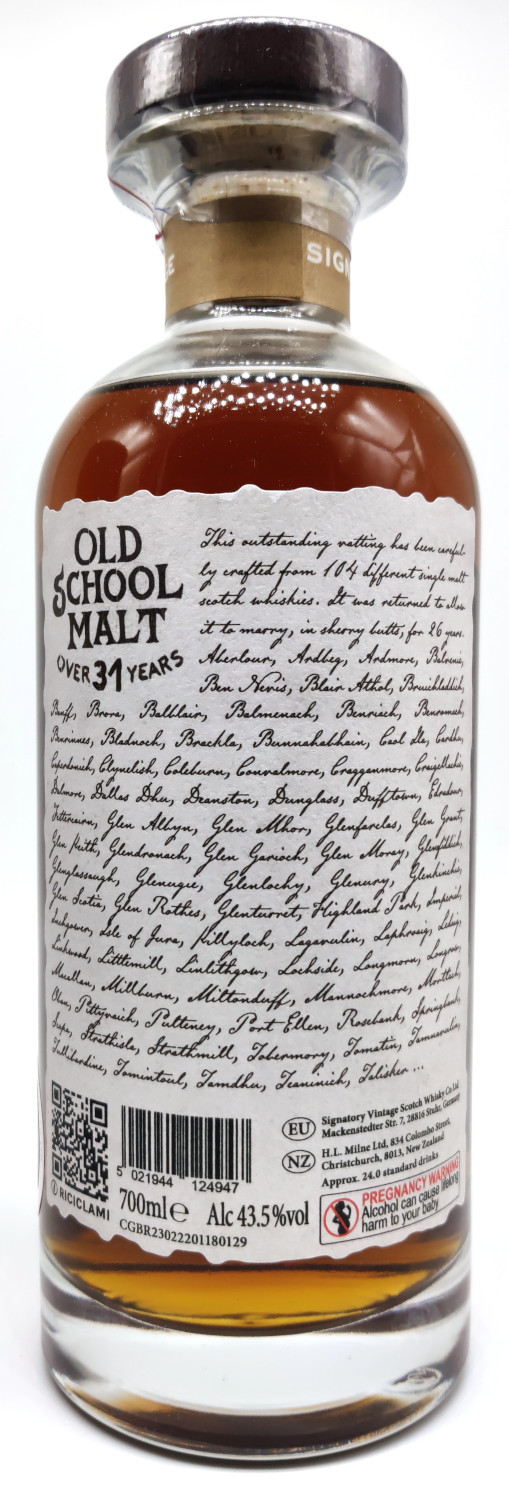 SIGN
OLD
SCHOOL
MALT
OVER 31 YEARS
This outstanding vatting has been careful-
ly crafted from 104 different single malt
scotch whiskies. It was returned to allow
it to marry, in sherry butts, for 26 years.
Aberlour, Ardbeg, Ardmore, Balvenie,
Ben Nevis, Blair Athol, Bruichladdich,
Banff, Brora, Balblair, Balmenach, Benriach, Benromach,
Benrinnes, Bladnoch, Brackla, Bunnahabhain, Caol Ila, Cardhu,
Caperdonich, Clynelish, Coleburn, Convalmore, Cragganmore, Craigellachie,
Dalmore, Dallas Dhu, Deanston, Dunglass, Dufftown, Edradour,
Fettercairn, Glen Albyn, Glen Mhor, Glenfarclas, Glen Grant,
Glen Keith, Glendronach, Glen Garioch, Glen Moray, Glenfiddich,
Glenglassaugh, Glenugie, Glenlochy, Glenury, Glenkinchie,
Glen Scotia, Glen Rothes, Glenturret, Highland Park, Imperial,
Inchgower, Isle of Jura, Killyloch, Lagavulin, Laphroaig, Ledaig,
Linkwood, Littlemill, Linlithgow, Lochside, Longmorn, Longrow,
Macallan, Millburn, Miltonduff, Mannochmore, Mortlach,
Oban, Pittyvaich, Pulteney, Port Ellen, Rosebank, Springbank,
Strathisla, Strathmill, Tobermory, Tomatin, Tamnavulin,
Tullibardine, Tomintoul, Tamdhu, Teaninich, Talisker ...
EU Signatory Vintage Scotch Whisky Co Ltd
Mackenstedter Str. 7, 28816 Stuhr, Germany
NZ H.L. Milne Ltd, 834 Colombo Street,
Christchurch, 8013, New Zealand
Approx. 24.0 standard drinks
5 021944 124947
RICICLAMI
700ml e Alc 43.5%vol
CGBR23022201180129
PREGNANCY WARNING
Alcohol can cause lifelong
harm to your baby